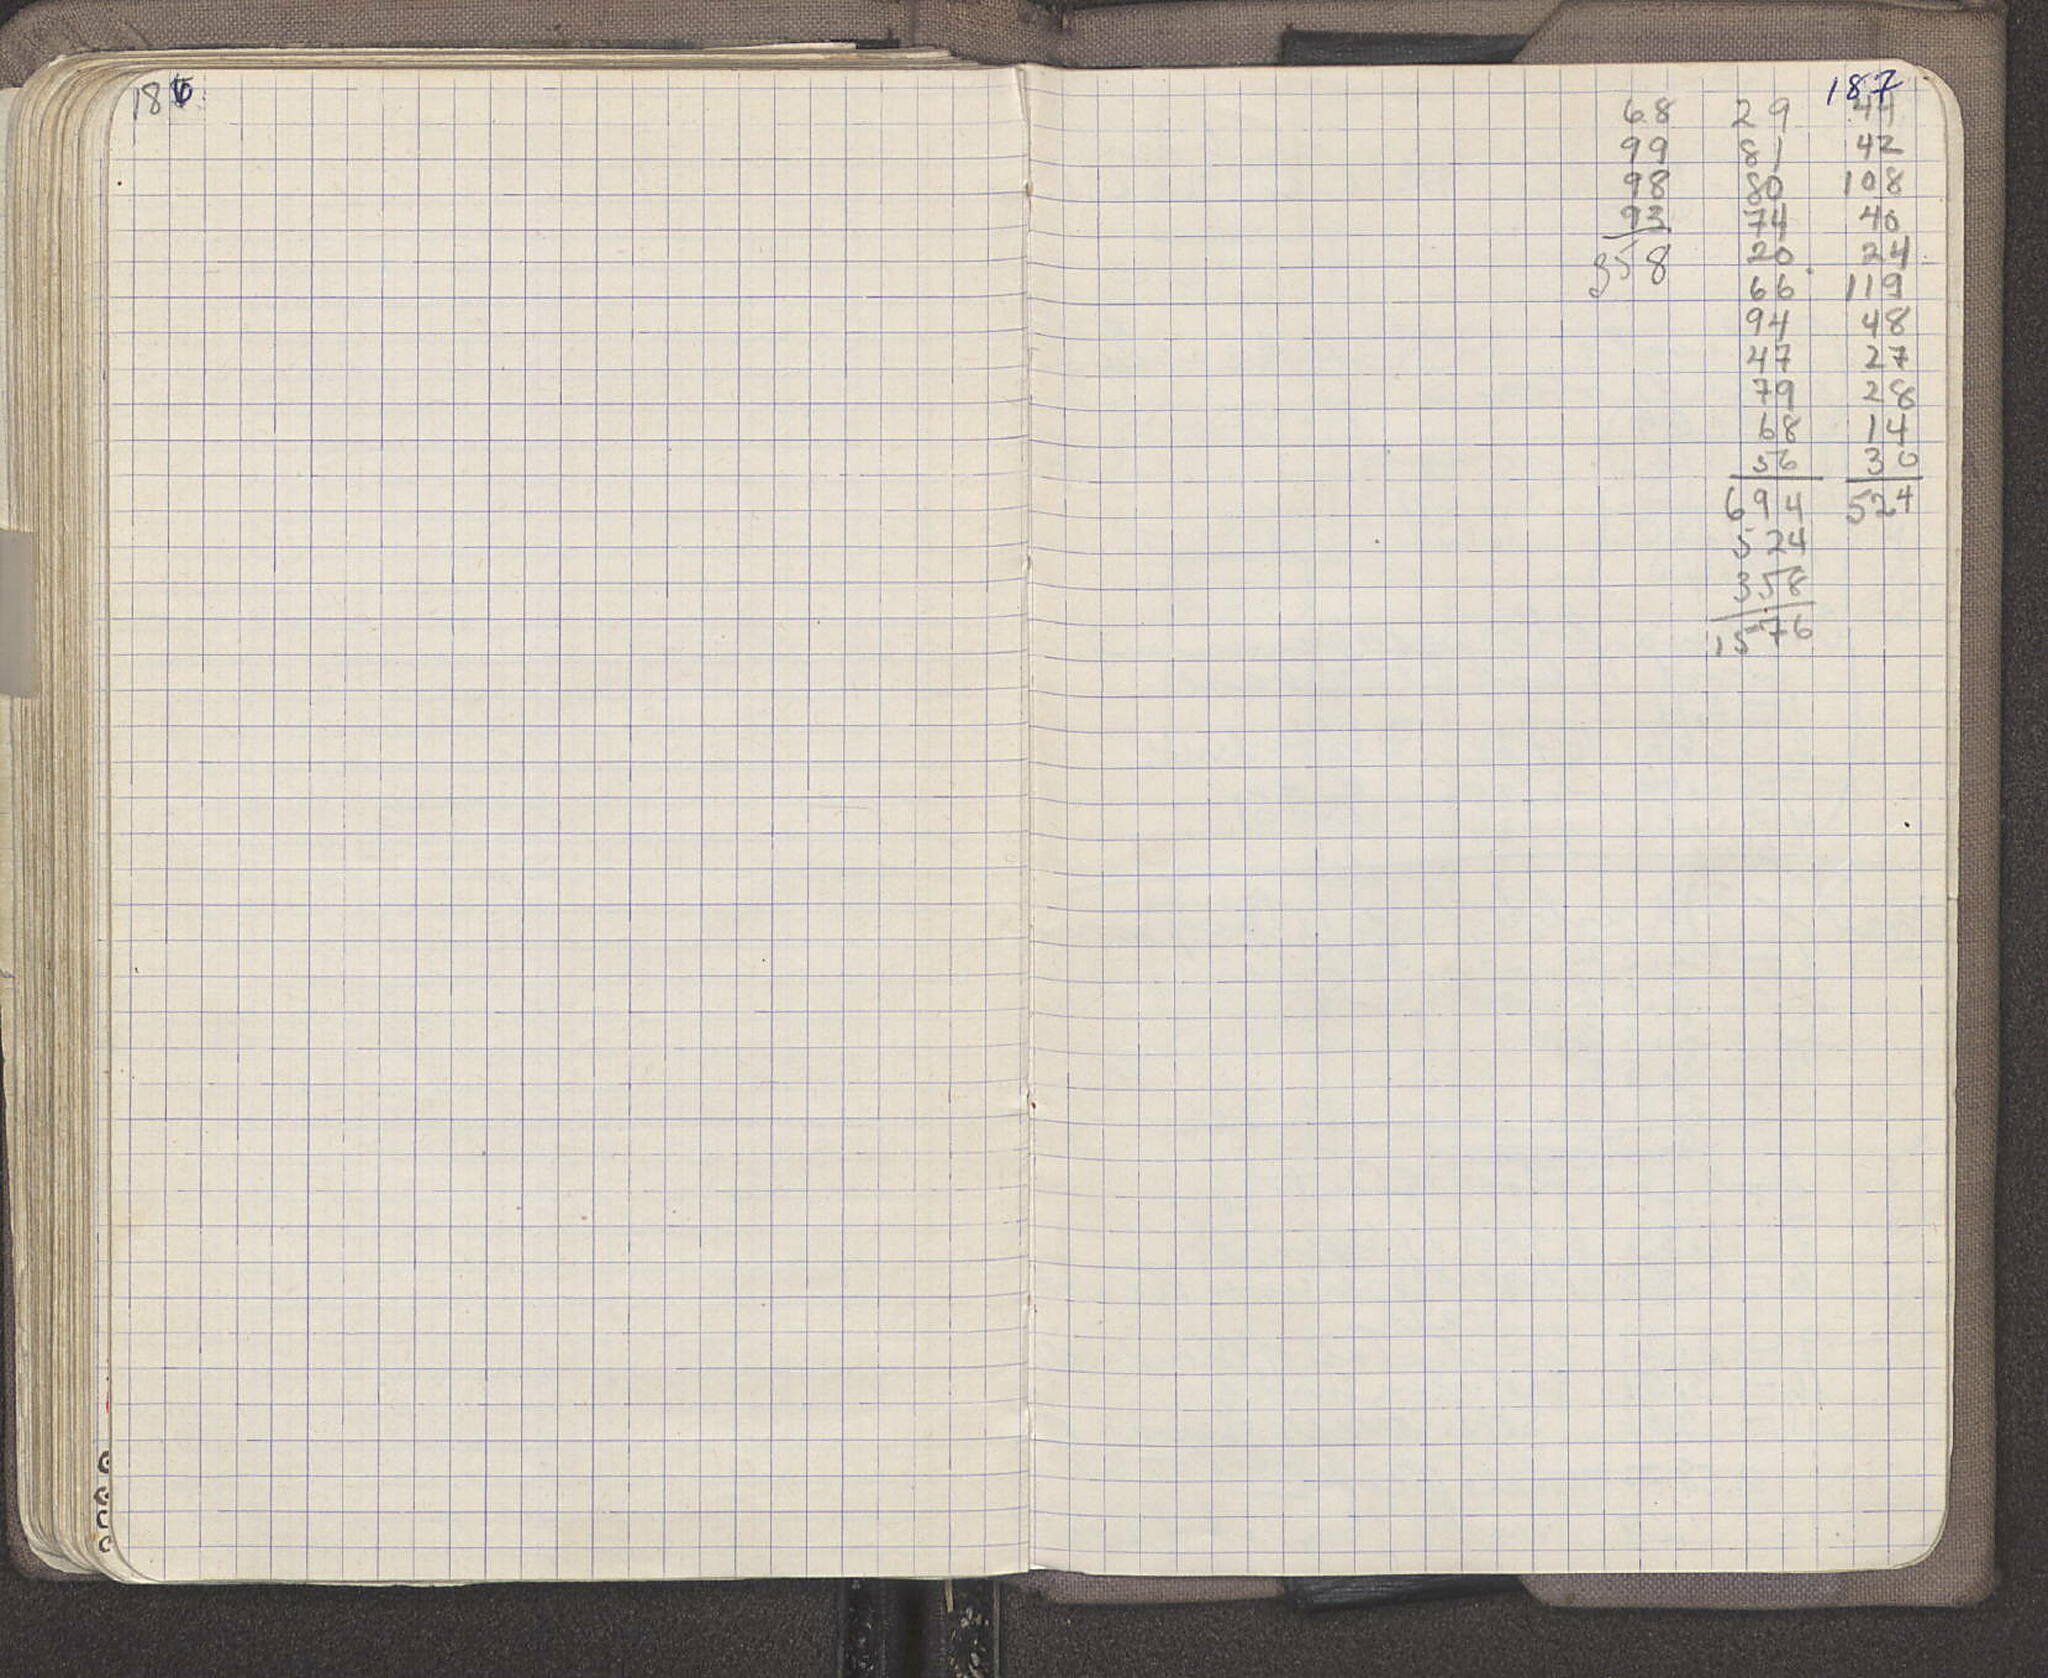 186
187
68 29 44
99 81 42
98 80 108
93 74 40
358 20 24
66 119
94 48
47 27
79 28
68 14
56 30
694 524
524
358
1576